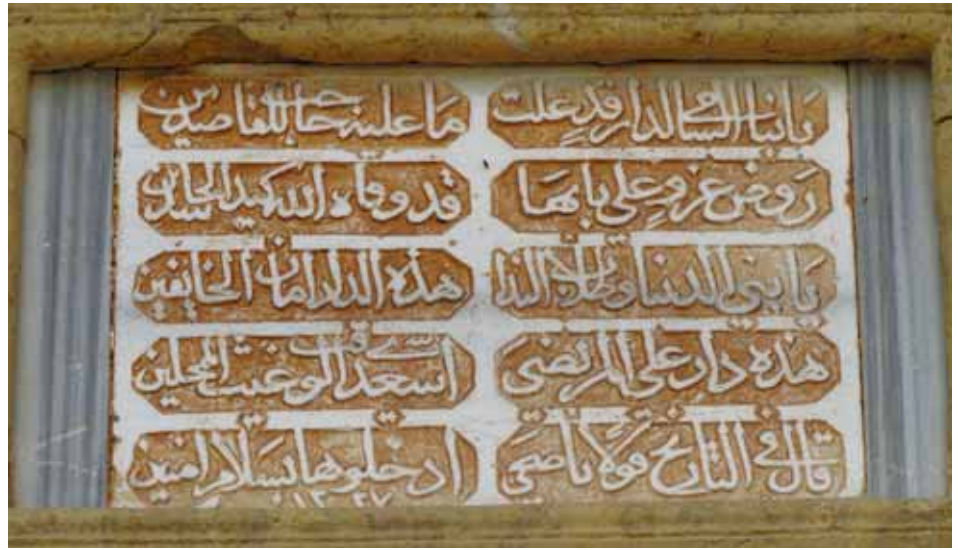 يا بنا في السما لدار قد علت ما للقاصدين
روض عز وعلى بابها قد وقاه الله كيد الحاسدين
يا بني الدنيا الندا هذه الدار امان الخايفين
هذه دار علي المرتضى اسعد الوغى غيث الممحلين
قال في التاريخ قولا ناصحي ادخلوها بسلام امنين
١٣٢٧